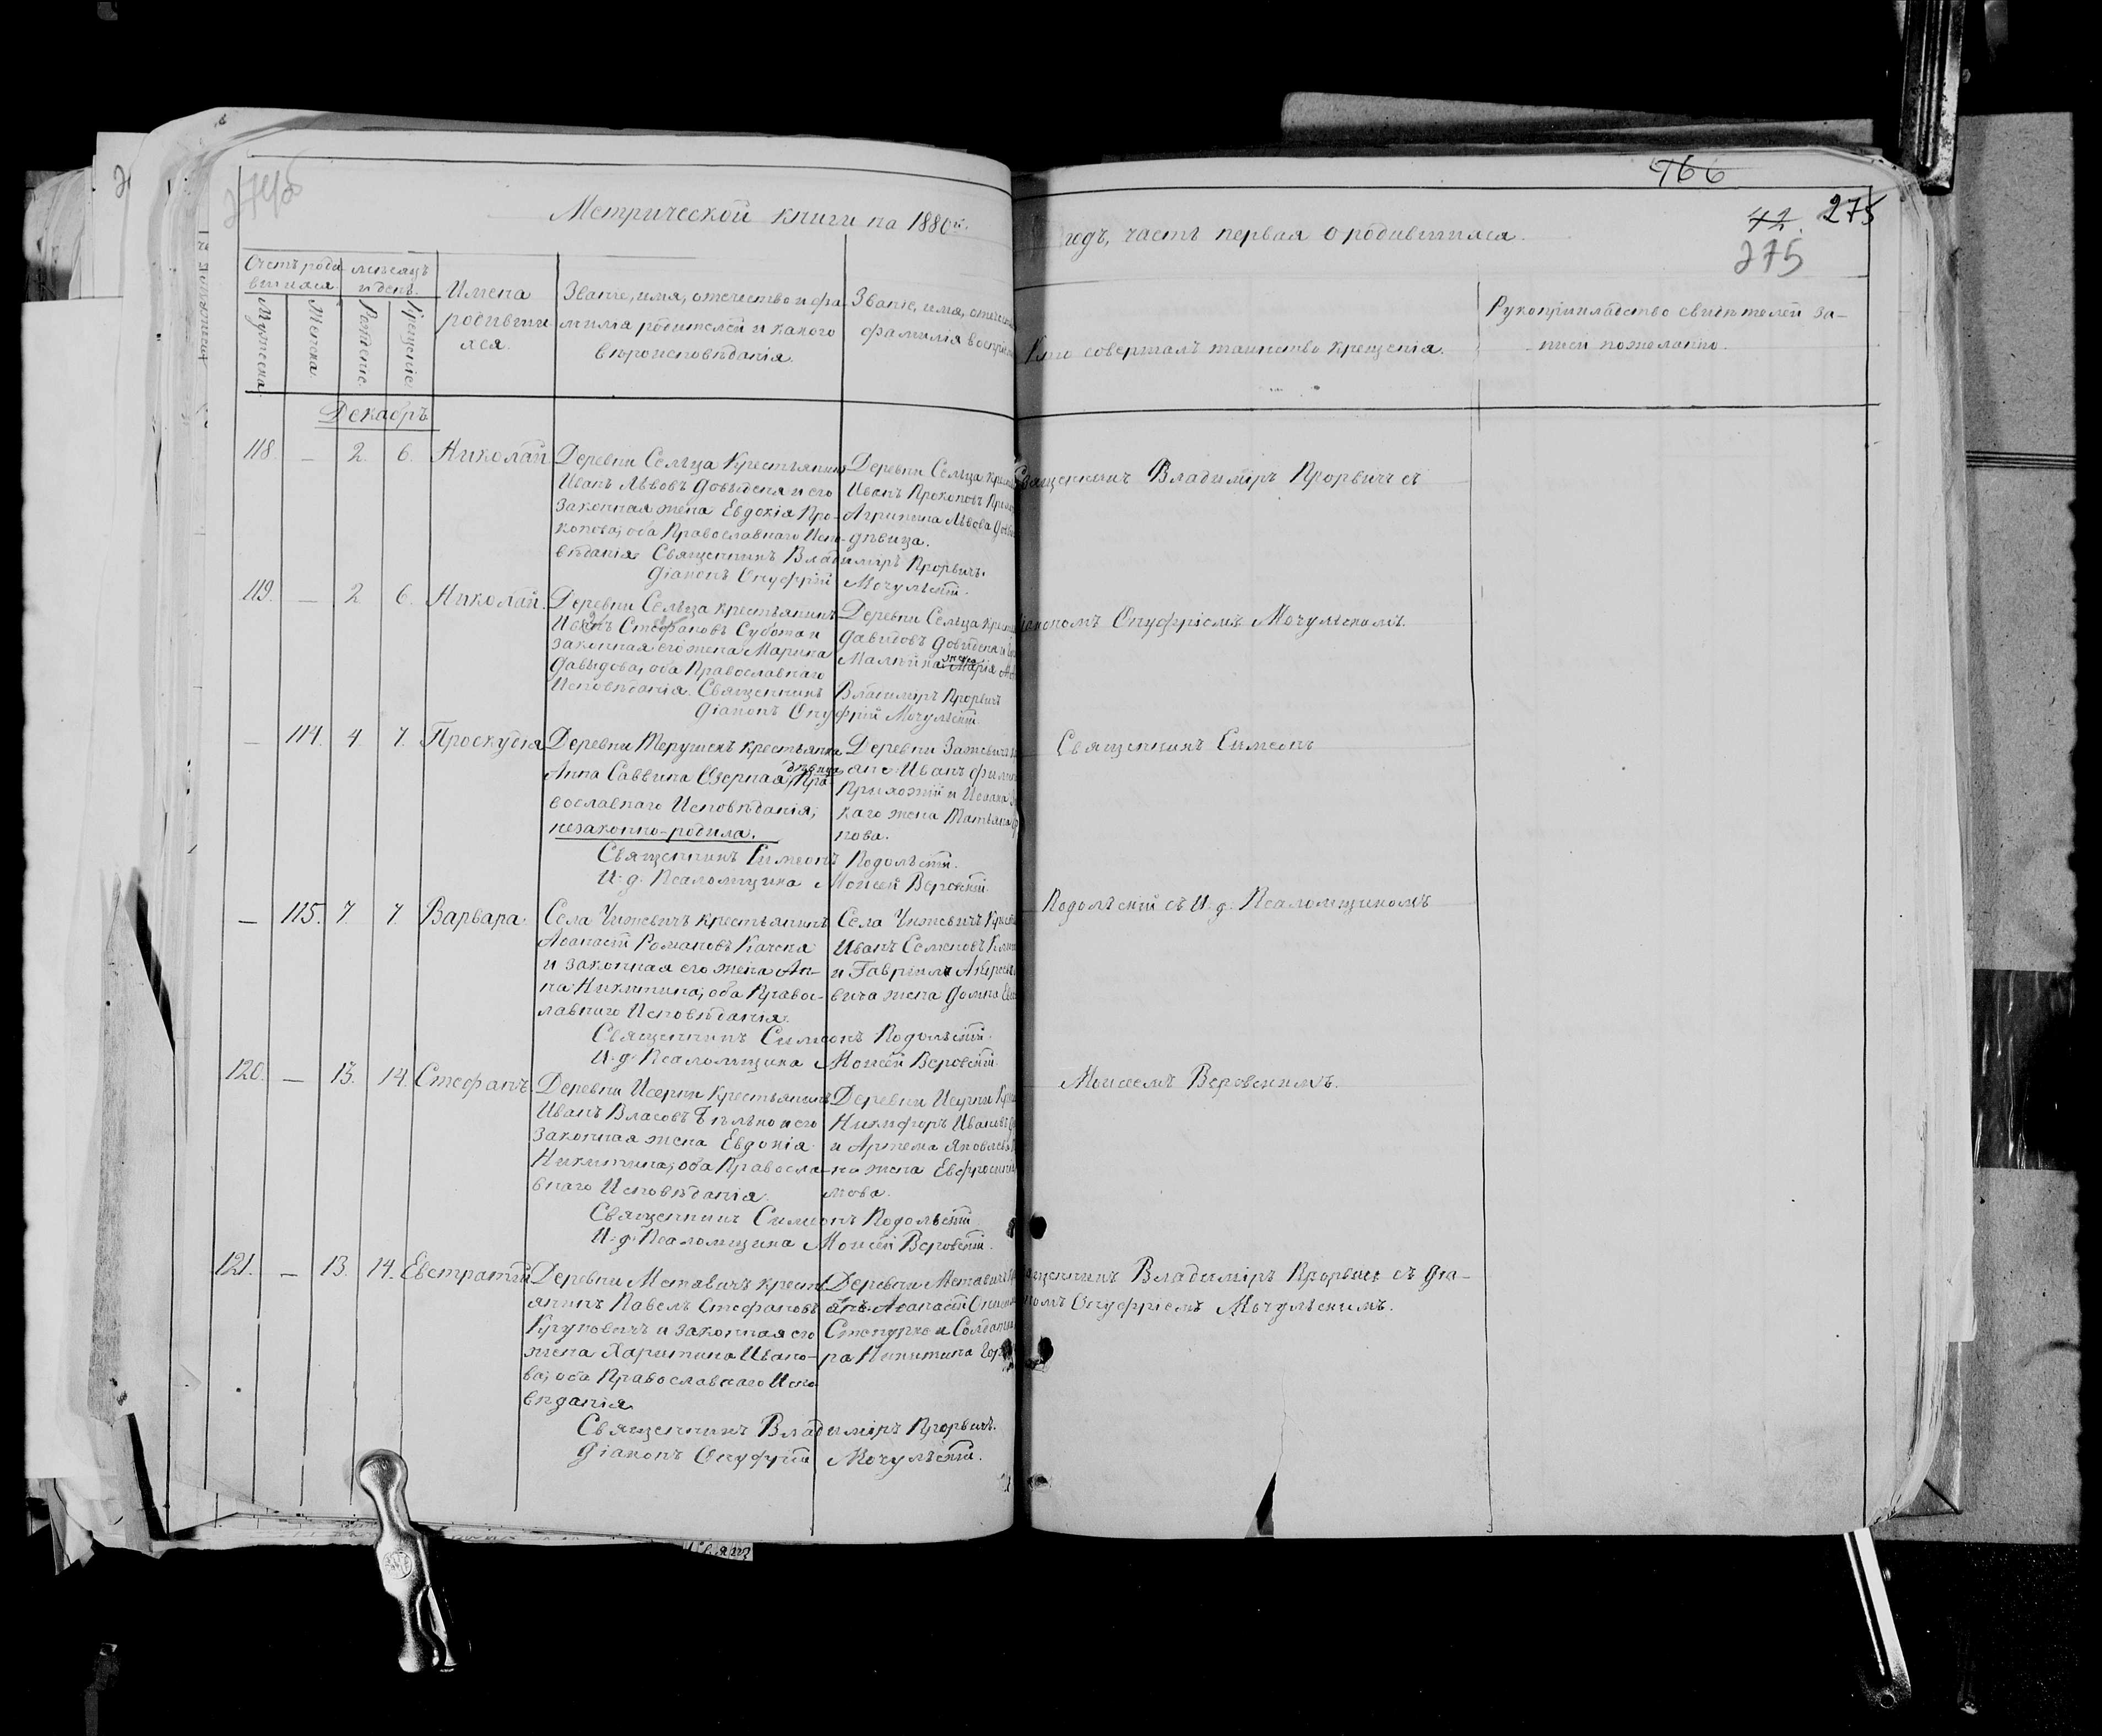 166
42. 275
275
Метрической книги на 1880й.
годъ, часть первая о родившихся.
Счетъ роди-
вшихся.
мѣсяцъ
и день.
Мужеска.
Женска.
Рожденіе.
Крещеніе.
Имена
родивши
хся.
Званіе, имя, отечество и фа-
милія родителей и какого
вѣроисповѣданія.
Званіе, имя, отечес
фамилія воспріем
Кто совершалъ таинство крещенія.
Рукоприкладство свидѣтелей за-
писи по желанію.
Декабрь
118. — 2. 6. Николай
Деревни Сельца Крестьянинъ
Иванъ Львовъ Довыдена и его
законная жена Евдокія Про-
копова; оба Православнаго Испо-
вѣданія. Священникъ Владиміръ Прорвичъ.
Діаконъ Онуфрій Мочульскій.
Деревни Сельца Крест
Иванъ Прокоповъ
Агрипина Львова
дѣвица.
Священникъ Владиміръ Прорвичъ съ
119. — 2 6. Николай.
Деревни Сельца крестьянинъ
Иванъ Стефановъ Субота и
законная его жена Марина
Давыдова, оба Православнаго
Исповѣданія. Священникъ Владиміръ Прорвичъ
Діаконъ Онуфрій Мочульскій
Деревни Сельца Крест
Давидовъ Довыдена и
жена
діакономъ Онуфріемъ Мочульскимъ.
— 114. 4. 7. Проскудія
Деревни Терушекъ крестьянка
дѣвица
Анна Саввина Озерная, Пра-
вославнаго Исповѣданія,
незаконно-родила.
Священникъ Симеонъ Подольскій.
И. д. Псаломщика Моисей Веровскій.
яне Иванъ
каго жена Татьяна
пова.
Священникъ Симеонъ
— 115. 7. 7. Варвара.
Села Чижевичъ крестьянинъ
Аѳанасій Романовъ Качена
и законная его жена Ан-
на Никитина; оба Правос-
лавнаго Исповѣданія.
Священникъ Симеонъ Подольскій.
И. д. Псаломщика Моисей Веровскій.
Села Чижевичъ Крест
Иванъ Семеновъ
и Гавриила
вича жена Домна
Подольскій съ И. д. Псаломщикомъ
120. — 13. 14. Стефанъ.
Деревни Исерни Крестьянинъ
Иванъ Власовъ Бѣлько и его
законная жена Евдокія
Никитина; оба Правосла-
внаго Исповѣданія.
Священникъ Симеонъ Подольскій
И. д. Псаломщика Моисей Веровскій.
Деревни Исерни Кр
Никифоръ Ивановъ
и Артема Яковлева
ка жена Евфросинія
мова.
Моисеемъ Веровскимъ.
121. — 13. 14. Евстратій
Деревни Метявичъ крест-
янинъ Павелъ Стефановъ
Круковичъ и законная его
жена Харитина Ивано-
ва; оба Православнаго Испо-
вѣданія.
Священникъ Владиміръ Прорвичъ.
Діаконъ Онуфрій Мочульскій.
Деревни Метявичъ
яне Аѳанасій
и Солдатка
ра Никитина
Священникъ Владиміръ Прорвичъ съ Діа-
кономъ Онуфріемъ Мочульскимъ.